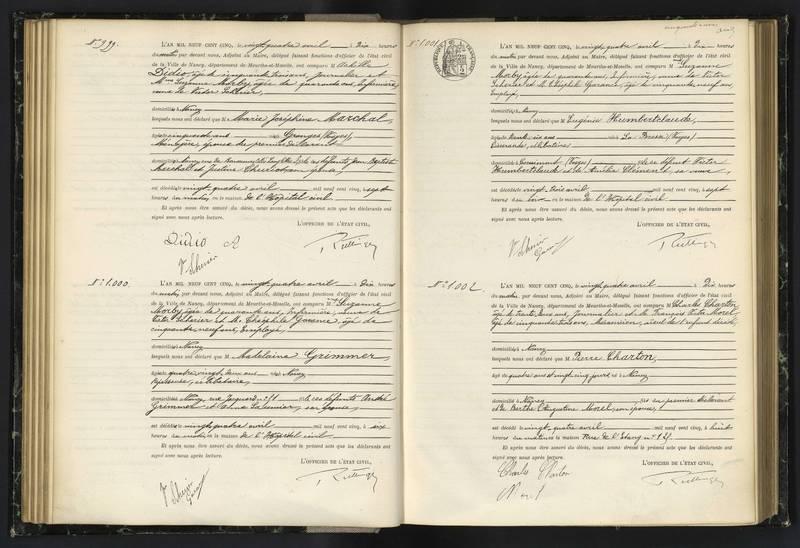 N° 999.
L'AN MIL NEUF CENT CINQ, le vingt quatre avril à Dix heures
du matin par devant nous, Adjoint au Maire, délégué faisant fonctions d'officier de l'état civil
de la Ville de Nancy, département de Meurthe-et-Moselle, ont comparu M. Achille
Didio âgé de cinquante trois ans, Journalier et
Mme Suzanne Morby âgée de quarante ans, infirmière,
veuve de Victor Scherier
domiciliés à Nancy
lesquels nous ont déclaré que M Marie Joséphine Marchal
âgée cinquante ans né à Granges (Vosges)
Ménagère, épouse du premier déclarant
domiciliée à Nancy
Marchal et Justine
est décédée le vingt quatre avril mil neuf cent cinq, à sept
heures du matin, en la maison de l'Hôpital civil.
Et après nous être assuré du décès, nous avons dressé le présent acte que les déclarants ont
signé avec nous après lecture.
L'OFFICIER DE L'ÉTAT CIVIL,
Didio A
V Scherier
N° 1.000.
L'AN MIL NEUF CENT CINQ, le vingt quatre avril à Dix heures
du matin, par devant nous, Adjoint au Maire, délégué faisant fonctions d'officier de l'état civil
de la Ville de Nancy, département de Meurthe-et-Moselle, ont comparu Mme Suzanne
Morby âgée de quarante ans, infirmière, veuve de
Victor Scherier et M. Théophile Garance, âgé de
cinquante neuf ans, Employé,
domiciliés à Nancy
lesquels nous ont déclaré que M Madelaine Grimmer,
âgée de quatre vingt deux ans née à Nancy
Repasseuse, célibataire
domiciliée à Nancy, rue Jacquard n° 51 et ses défunts André
Grimmer et Salmier, son épouse
est décédée le vingt quatre avril mil neuf cent cinq, à six
heures du matin en la maison de l'Hôpital civil
Et après nous être assuré du décès, nous avons dressé le présent acte que les déclarants ont
signé avec nous après lecture.
L'OFFICIER DE L'ÉTAT CIVIL,
V Scherier
N° 1.001
L'AN MIL NEUF CENT CINQ, le vingt quatre avril à Dix heures
du matin, par devant nous, Adjoint au Maire, délégué faisant fonctions d'officier de l'état civil
de la Ville de Nancy, département de Meurthe-et-Moselle, ont comparu Mme Suzanne
Morby, âgée de quarante ans, Infirmière, veuve de Victor
Scherier et M. Théophile Garance, âgé de cinquante neuf ans,
Employé,
domiciliés à Nancy
lesquels nous ont déclaré que M Eugénie Humbertclaude,
âgée de trente six ans née à La Bresse (Vosges)
célibataire
domiciliée à Cornimont (Vosges) fille de défunt Victor
Humbertclaude et de Amélie Clément, sa veuve,
est décédée le vingt trois avril mil neuf cent cinq, à sept
heures du soir en la maison de l'Hôpital civil
Et après nous être assuré du décès, nous avons dressé le présent acte que les déclarants ont
signé avec nous après lecture.
L'OFFICIER DE L'ÉTAT CIVIL,
V Scherier
N° 1.002
L'AN MIL NEUF CENT CINQ, le vingt quatre avril à Dix heures
du matin, par devant nous, Adjoint au Maire, délégué faisant fonctions d'officier de l'état civil
de la Ville de Nancy, département de Meurthe-et-Moselle, ont comparu M Charles Charton
âgé de trente ans, Journalier et M. François Victor Morel
âgé de cinquante ans, Mécanicien, aïeul de l'enfant décédé,
domiciliés à Nancy
lesquels nous ont déclaré que M Pierre Charton,
âgé de quatre ans et vingt cinq jours né à Nancy
domicilié à Nancy, fils du premier déclarant
et de Berthe Augustine Morel, son épouse,
est décédé le vingt quatre avril mil neuf cent cinq, à huit
heures du matin en la maison Rue de l'Etang n°
Et après nous être assuré du décès, nous avons dressé le présent acte que les déclarants ont
signé avec nous après lecture.
L'OFFICIER DE L'ÉTAT CIVIL,
Charles Charton
Morel